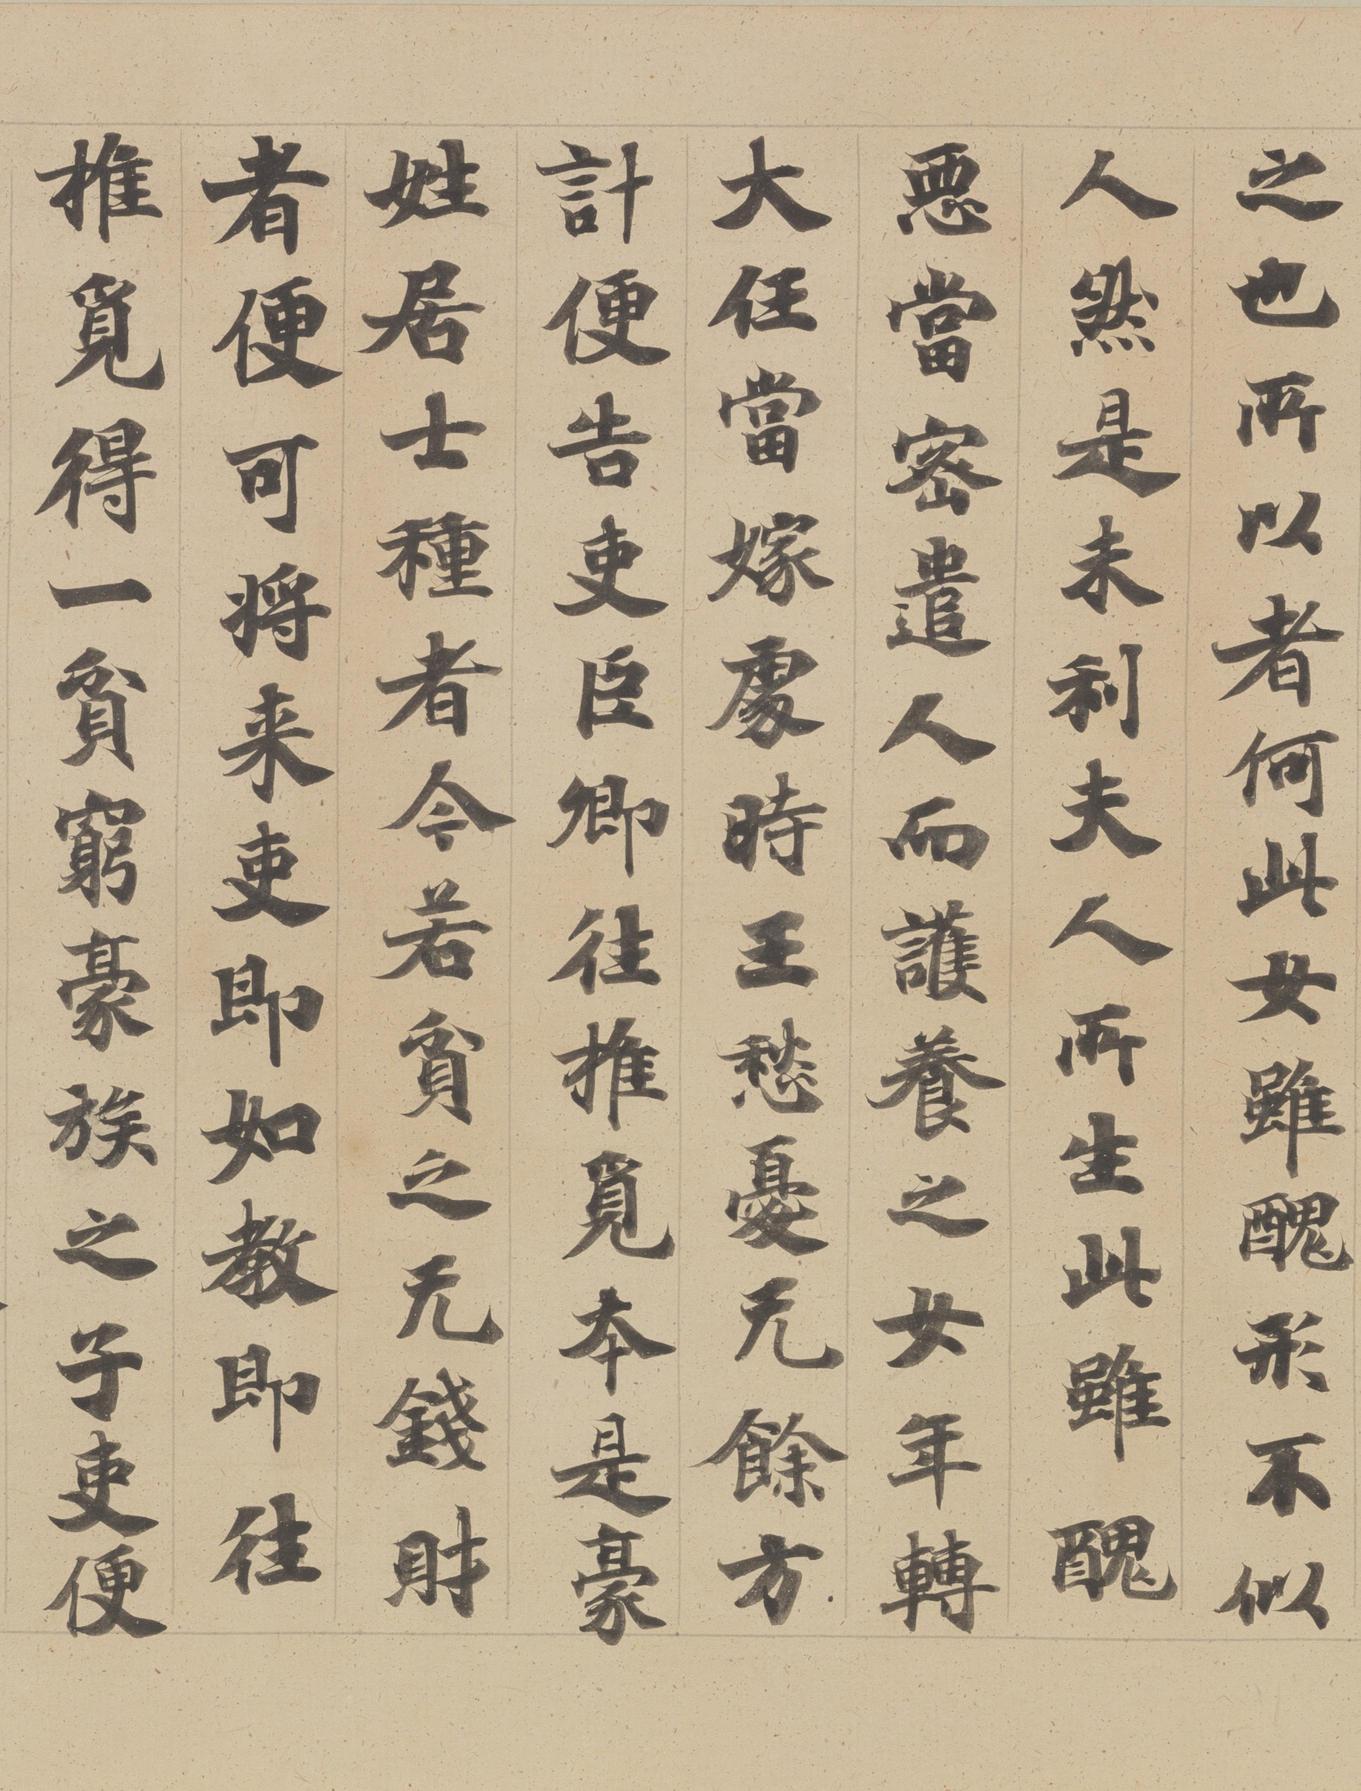 之也所以者何此女雖醜形不似
人然是末利夫人所生此雖醜
惡當密遣人而護養之女年轉
大任當嫁處時王愁憂无餘方
計便告吏臣卿往推覓本是豪
姓居士種者今若貧之无錢財
者便可將来吏即如教即往
推覓得一貧窮豪族之子吏便